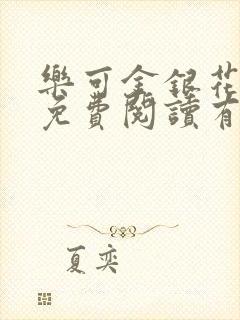 樂可金銀花
免費閱讀有
夏奕